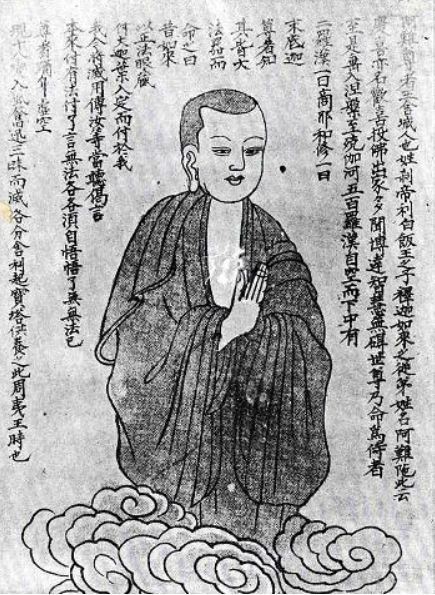 阿難尊者王舍城人也姓刹帝利白飯王之子釋迦如來之從弟姓名阿難陁此云
慶喜亦名歡喜投佛出家多聞博達智慧無碍世尊乃命爲侍者
至是入涅槃至殑伽河五百羅漢自空而下中有
二羅漢一曰商那和修一曰
末底迦
尊者知
其皆大
法器而
命之曰
昔如來
以正法眼藏
付大迦葉入定而付於我
我今將滅用傳汝等當聽偈言
本來付有法付了言無法各各須自悟悟了無無法已
尊者身虛空
現十八變入風奮迅三昧而滅各分舍利起寶塔供養之此周夷王時也